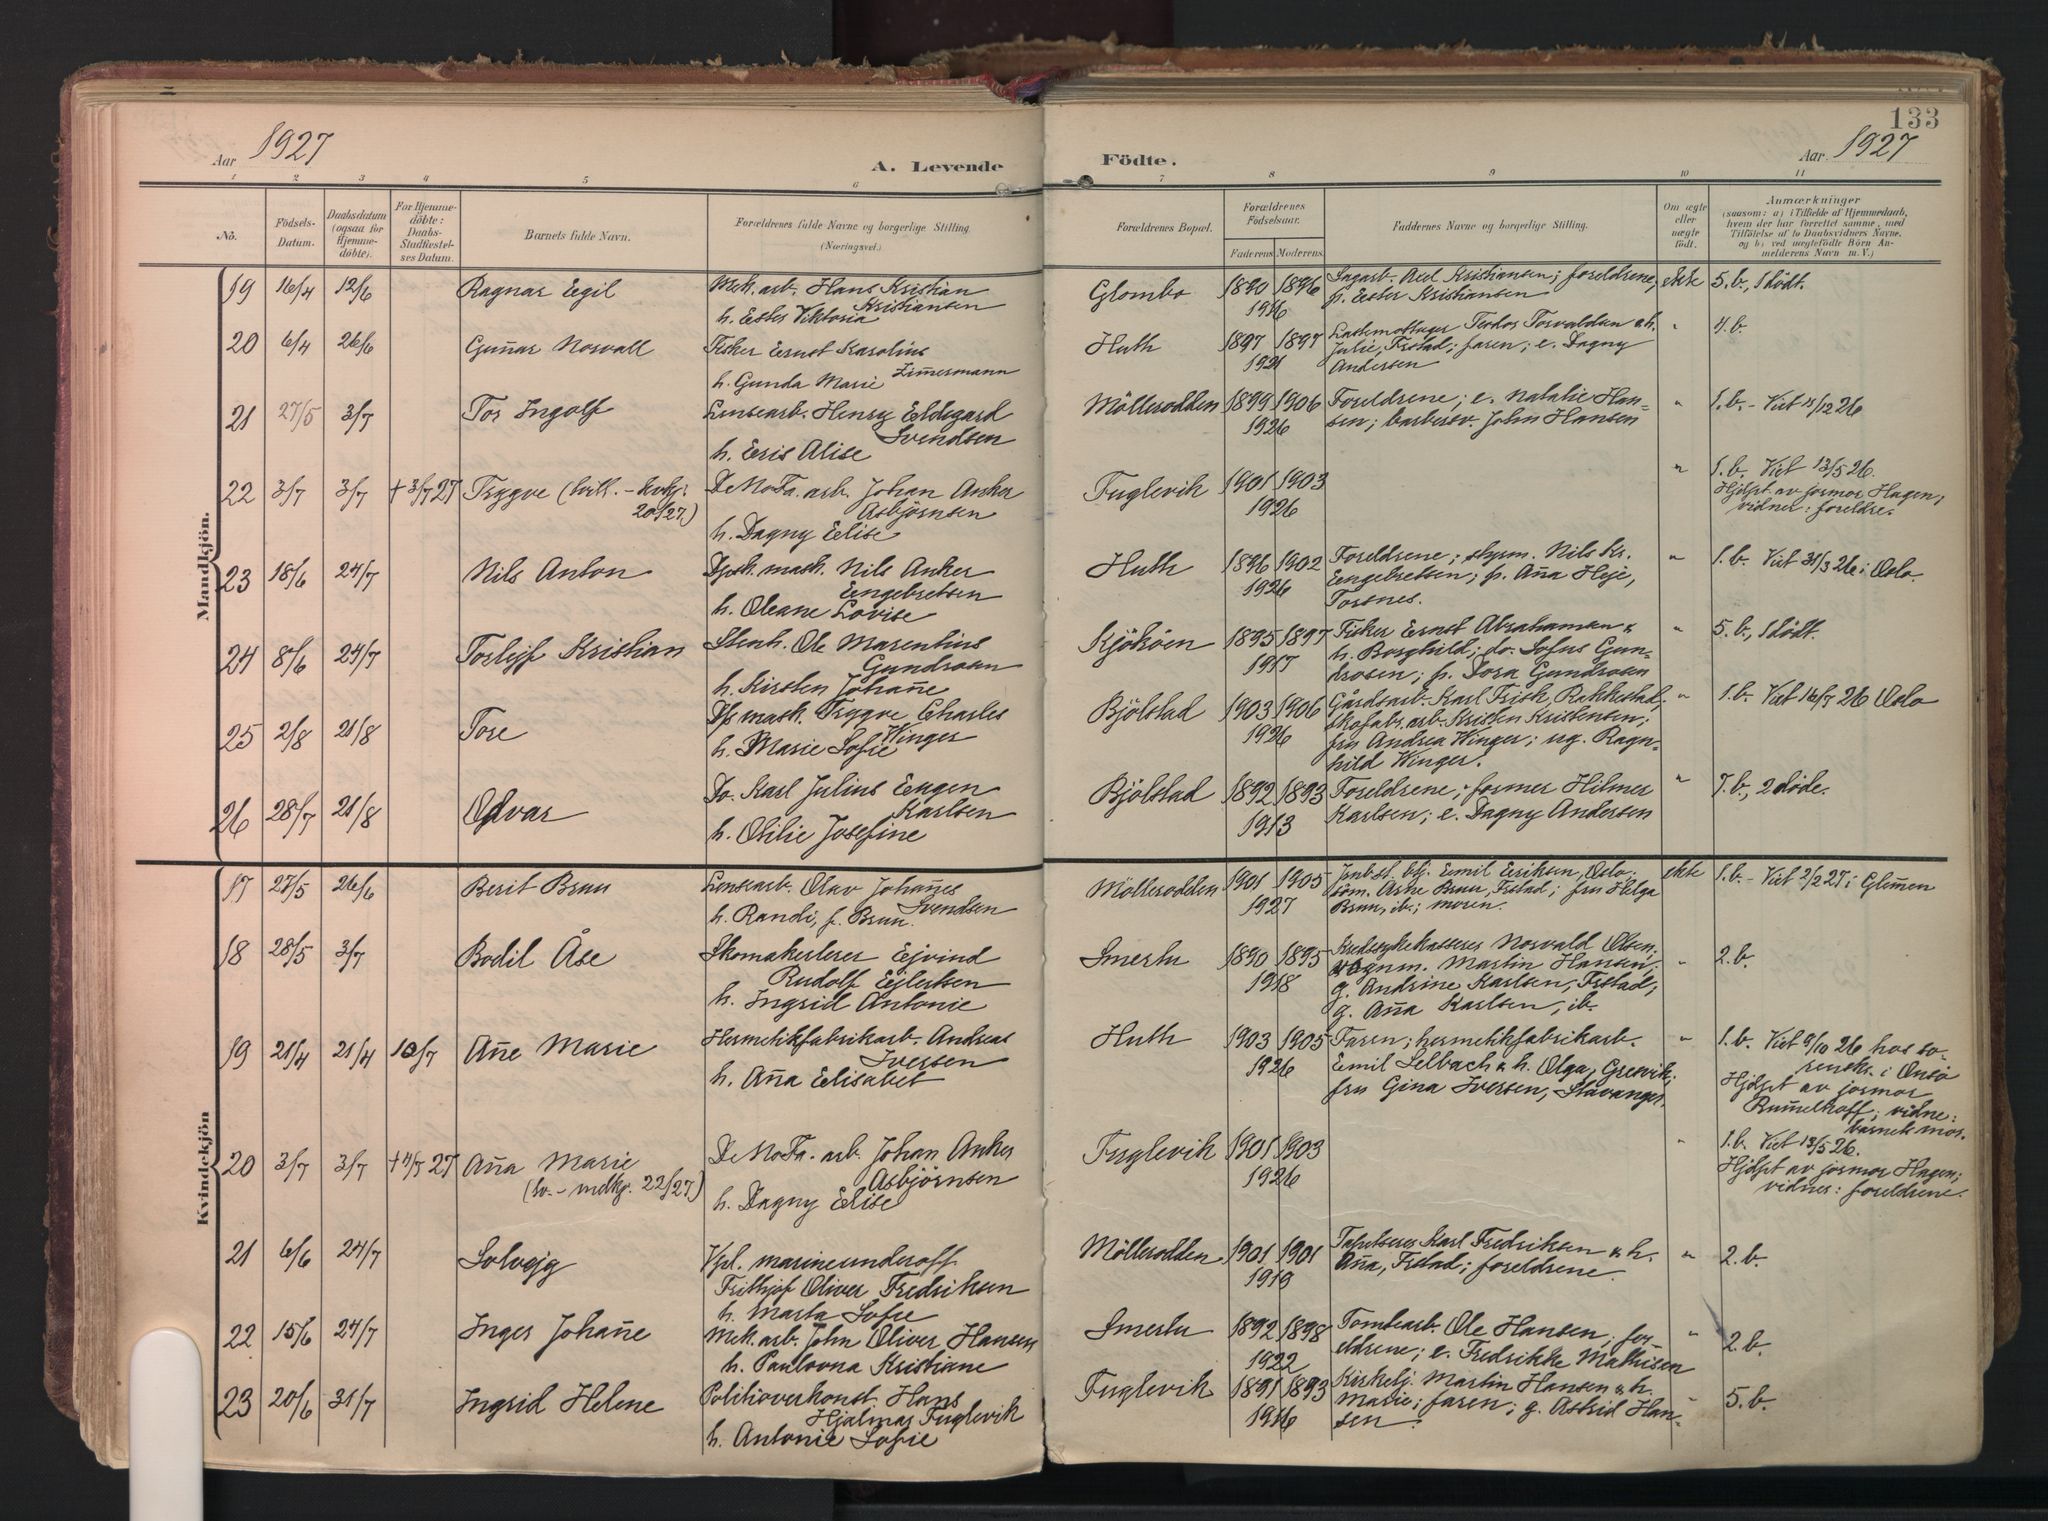 133
Aar 1927
A. Levende
Födte.
Aar. 1927
1 2 3 4 5 6 7 8 9 10 11
No.
Födsels-
Datum.
Daabsdatum
(ogsaa for
Hjemme-
döbte).
For Hjemme-
döbte:
Daabs-
Stadfæstel-
ses Datum.
Barnets fulde Navn.
Forældrenes fulde Navne og borgerlige Stilling.
(Næringsvei.)
Forældrenes Bopæl.
Forældrenes
Födselsaar.
Faderens. Moderens.
Faddernes Navne og borgerlige Stilling.
Om ægte
eller
uægte
födt.
Anmærkninger
(saasom: a) i Tilfælde af Hjemmedaab,
hvem der har forrettet samme, med
Tilföielse af to Daabsvidners Navne,
og b) ved uægtefödte Börn An-
melderens Navn m. V.)
Mandkjön.
19 16/4 12/6 Ragnar Egil
Mek. arb. Hans Kristian
Kristiansen
h. Ester Viktoria
Glombo 1890 1896
1916
Sagarb. Axel Kristiansen; foreldrene;
p. Ester Kristiansen
ekte 5. b., 1 dødt.
20 6/4 26/6 Gun̄ar Norvall
Fisker Ernst Karolius
Zim̄ermann
h. Gunda Marie
Huth 1897 1897
1921
Lastemottager Teodor Torvaldsen & h.
Julie, Frstad; faren; e. Dagny
Andersen
" 4. b.
21 27/5 3/7 Tor Ingolf
Lensearb. Henry Eldegard
Svendsen
h. Eris Alise
Möllerodden 1899 1906
1926
Foreldrene; e. Natalie Han-
sen; barbersv. John Hansen
" 1. b. - Viet 11/12 26
22 3/7 3/7 + 3/7 27 Trygve (tvill. - kvkj.
20/27.)
De No Fa. arb. Johan Anker
Asbjörnsen
h. Dagny Elise
Fuglevik 1901 1903
1926
" 1. b. Viet 13/5 26.
Hjdpt av jormor Hagen;
vidner: foreldre.
23 18/6 24/7 Nils Anton
Dpsk. mask. Nils Anker
Engebretsen
h. Oleane Lovise
Huth 1896 1902
1926
Foreldrene; styrm. Nils Kr.
Engebretsen; p. An̄a Heje,
Torsnes.
" 1. b. Viet 31/3 26 i Oslo.
24 8/6 24/7 Torlejf Kristian
Stenh. Ole Marentius
Gundrosen
h. Kirsten Johan̄e
Kjökøen 1895 1897
1917
Fisker Ernst Abrahamsen &
h. Borghild; do. Sofus Gun-
drosen; p. Dora Gundrosen
" 5. b., 1 dödt.
25 2/8 21/8 Tore
Dps mask. Trygve Charles
Winger
h. Marie Sofie
Bjölstad 1903 1906
1926
Gårdsarb. Karl Frisk, Rakkestad;
skofabr. arb. Kristen Kristensen;
fru Andrea Winger; ug. Ragn-
hild Winger.
" 1. b. Viet 16/7 26 Oslo
26 28/7 21/8 Odvar
Do. Karl Julius Eugen
Karlsen
h. Otilie Josefine
Bjölstad 1892 1893
1913
Foreldrene; former Hilmer
Karlsen; e. Dagny Andersen
" 7. b., 2 døde.
Kvindekjön
17 27/5 26/6 Berit Brun
Lensearb. Olav Johan̄es
Svendsen
h. Randi, f. Brun
Möllerodden 1901 1905
1927
Jonb. st. btj. Emil Eriksen, Oslo;
söm. Arne Brun, Frstad; fru Helga
Brun, ib.; moren.
ekte 1. b. - Viet 2/2 27 i Glem̄en
18 28/5 3/7 Bodil Åse
Skomakerlerer Ejvind
Rudolf Ejlertsen
h. Ingrid Antonie
Smertu 1890 1895
1918
Kredssykekasseres Norvald Olsen;
vognm. Martin Hansen;
g. Andrine Karlsen, Frstad;
g. An̄a Karlsen, ib.
" 2. b.
19 21/4 21/4 10/7 An̄e Marie
Hermetikfabrikarb. Andreas
Iversen
h. An̄a Elisabet
Huth 1903 1905
1926
Faren; hermetikfabrikarb.
Emil Selbach & h. Olga, Gresvik;
fru Gina Iversen, Stavanger.
" 1. b. Viet 9/10 26 hos so-
rensks. i Onsø
Hjdpt av jormor
Rum̄elhoff; vidne:
barnets mor.
20 3/7 3/7 + 4/7 27 An̄a Marie
(tv. - mdkj. 22/27.)
De No Fa. arb. Johan Anker
Asbjörnsen
h. Dagny Elise
Fuglevik 1901 1903
1926
" 1. b. Viet 13/5 26.
Hjdpt av jormor Hagen;
vidner: foreldrene.
21 6/6 24/7 Solvejg
Vpl. marineunderoff.
Frithjof Oliver Fredriksen
h. Marta Sofie
Möllerodden 1901 1901
1919
Tapetserer Karl Fredriksen & h.
An̄a, Frstad; foreldrene.
" 2. b.
22 15/6 24/7 Inger Johan̄e
Mek. arb. John Oliver Hansen
h. Paulovna Kristiane
Smertu 1892 1898
1922
Tomtearb. Ole Hansen; for-
eldrene; e. Fredrikke Mathisen
" 2. b.
23 20/6 31/7 Ingrid Helene
Politioverkonst. Hans
Hjalmar Fuglevik
h. Antonie Sofie
Fuglevik 1891 1893
1916
Kirketj. Martin Hansen & h.
Marie; faren; g. Astrid Han-
sen
" 5. b.